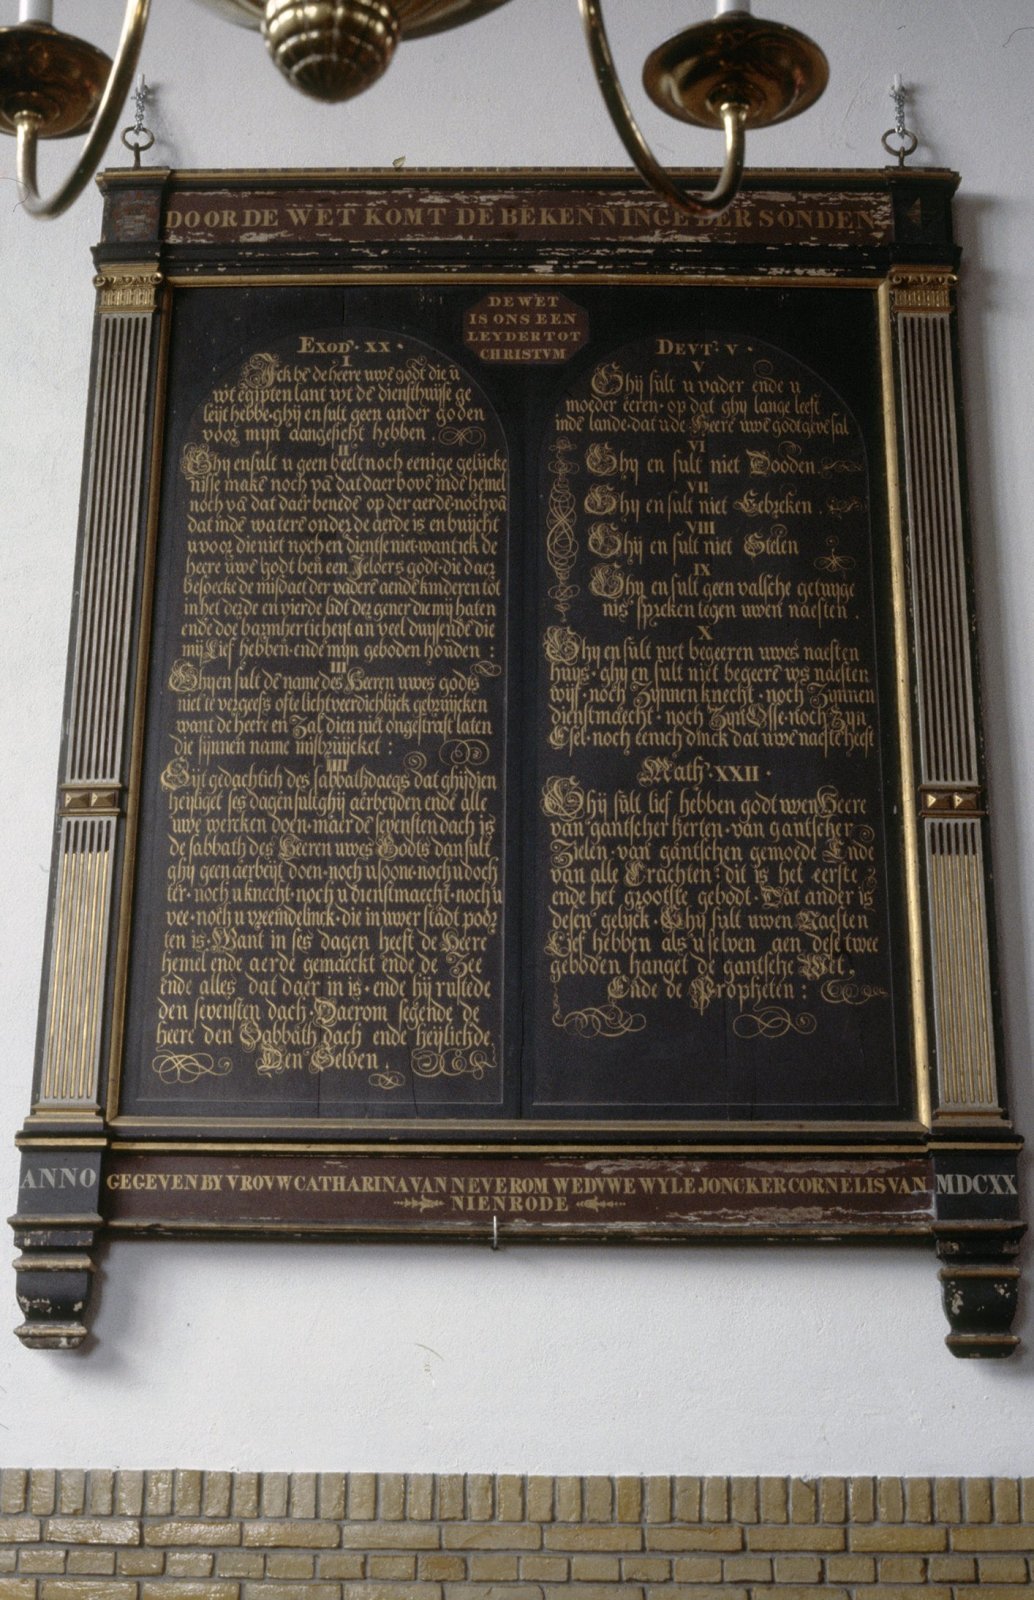 DOOR DE WET KOMT DE BEKENNINGE DER SONDEN
DE WET
IS ONS EEN
LEYDER TOT
CHRISTVM
EXOD. XX.
I
Jck be de heere uwe godt die u
wt egipten lant wt de diensthuijse ge
leijt hebbe. ghij en sult geen ander goden
voor mijn aangesicht hebben.
II
Ghy en sult u geen beelt noch eenige gelijcke
nisse make noch va dat daer bove inde hemel
noch va dat daer benede op der aerde noch va
dat inde watere onder de aerde is en buijcht
u voor die niet noch en dientse niet. want ick de
heere uwe Godt ben een Jeloers godt. die daer
besoecke de misdaet der vadere aende kinderen tot
in het derde en vierde lidt der gener die mij haten
ende doe barmherticheyt an veel duysende die
mij Lief hebben. ende mijn geboden houden :
III
Ghy en sult de name des Heeren uwes godts
niet te vergeefs ofte lichtveerdichlijck gebruijcken
want de heere en Zal dien niet ongestraft laten
die sijnnen name misbruijcket :
IIII
Sijt gedachtich des sabbathdaegs dat ghij dien
heyliget ses dagen sult ghij aerbeyden ende alle
uwe wercken doen. maer de sevensten dach is
de sabbath des Heeren uwes Godts dan sult
ghij geen aerbeijt doen. noch u soone. noch u doch
ter. noch u knecht. noch u dienstmaecht. noch u
vee. noch u vreemdelinck. die in uwer stadt poor
ten is. Want in ses dagen heeft de Heere
hemel ende aerde gemaeckt ende de Zee
ende alles dat daer in is. ende hij rustede
den sevensten dach. Daerom segende de
heere den Sabbath dach ende heylichde
Den Selven.
DEVT. V.
V
Ghij sult u vader ende u
moeder eeren. op dat ghy lange leeft
inde lande. dat u de Heere uwe godt geve sal
VI
Ghy en sult niet Dooden.
VII
Ghy en sult niet Eebreken.
VIII
Ghij en sult niet Stelen
IX
Ghy en sult geen valsche getuyge
nis spreken tegen uwen naesten.
X
Ghy en sult niet begeeren uwes naesten
huys. ghy en sult niet begeere ws naesten
wijf. noch Zynnen knecht. noch Zynnen
dienstmaecht. noch Zynt Osse. noch Zyn
Esel. noch eenich dinck dat uwe naeste heeft
Math. XXII.
Ghij sult lief hebben godt uwen Heere
van gantscher herten. van gantscher
Zielen. van gantschen gemoede Ende
van alle Crachten: dit is het eerste
ende het grootste gebodt. Dat ander is
desen gelyck. Ghij sult uwen Naesten
Lief hebben als u selven. aen dese twee
geboden hanget de gantsche Wet.
Ende de Propheten :
ANNO GEGEVEN BY VROVW CATHARINA VAN NEVEROM WEDVWE WYLE JONCKER CORNELIS VAN MDCXX
NIENRODE